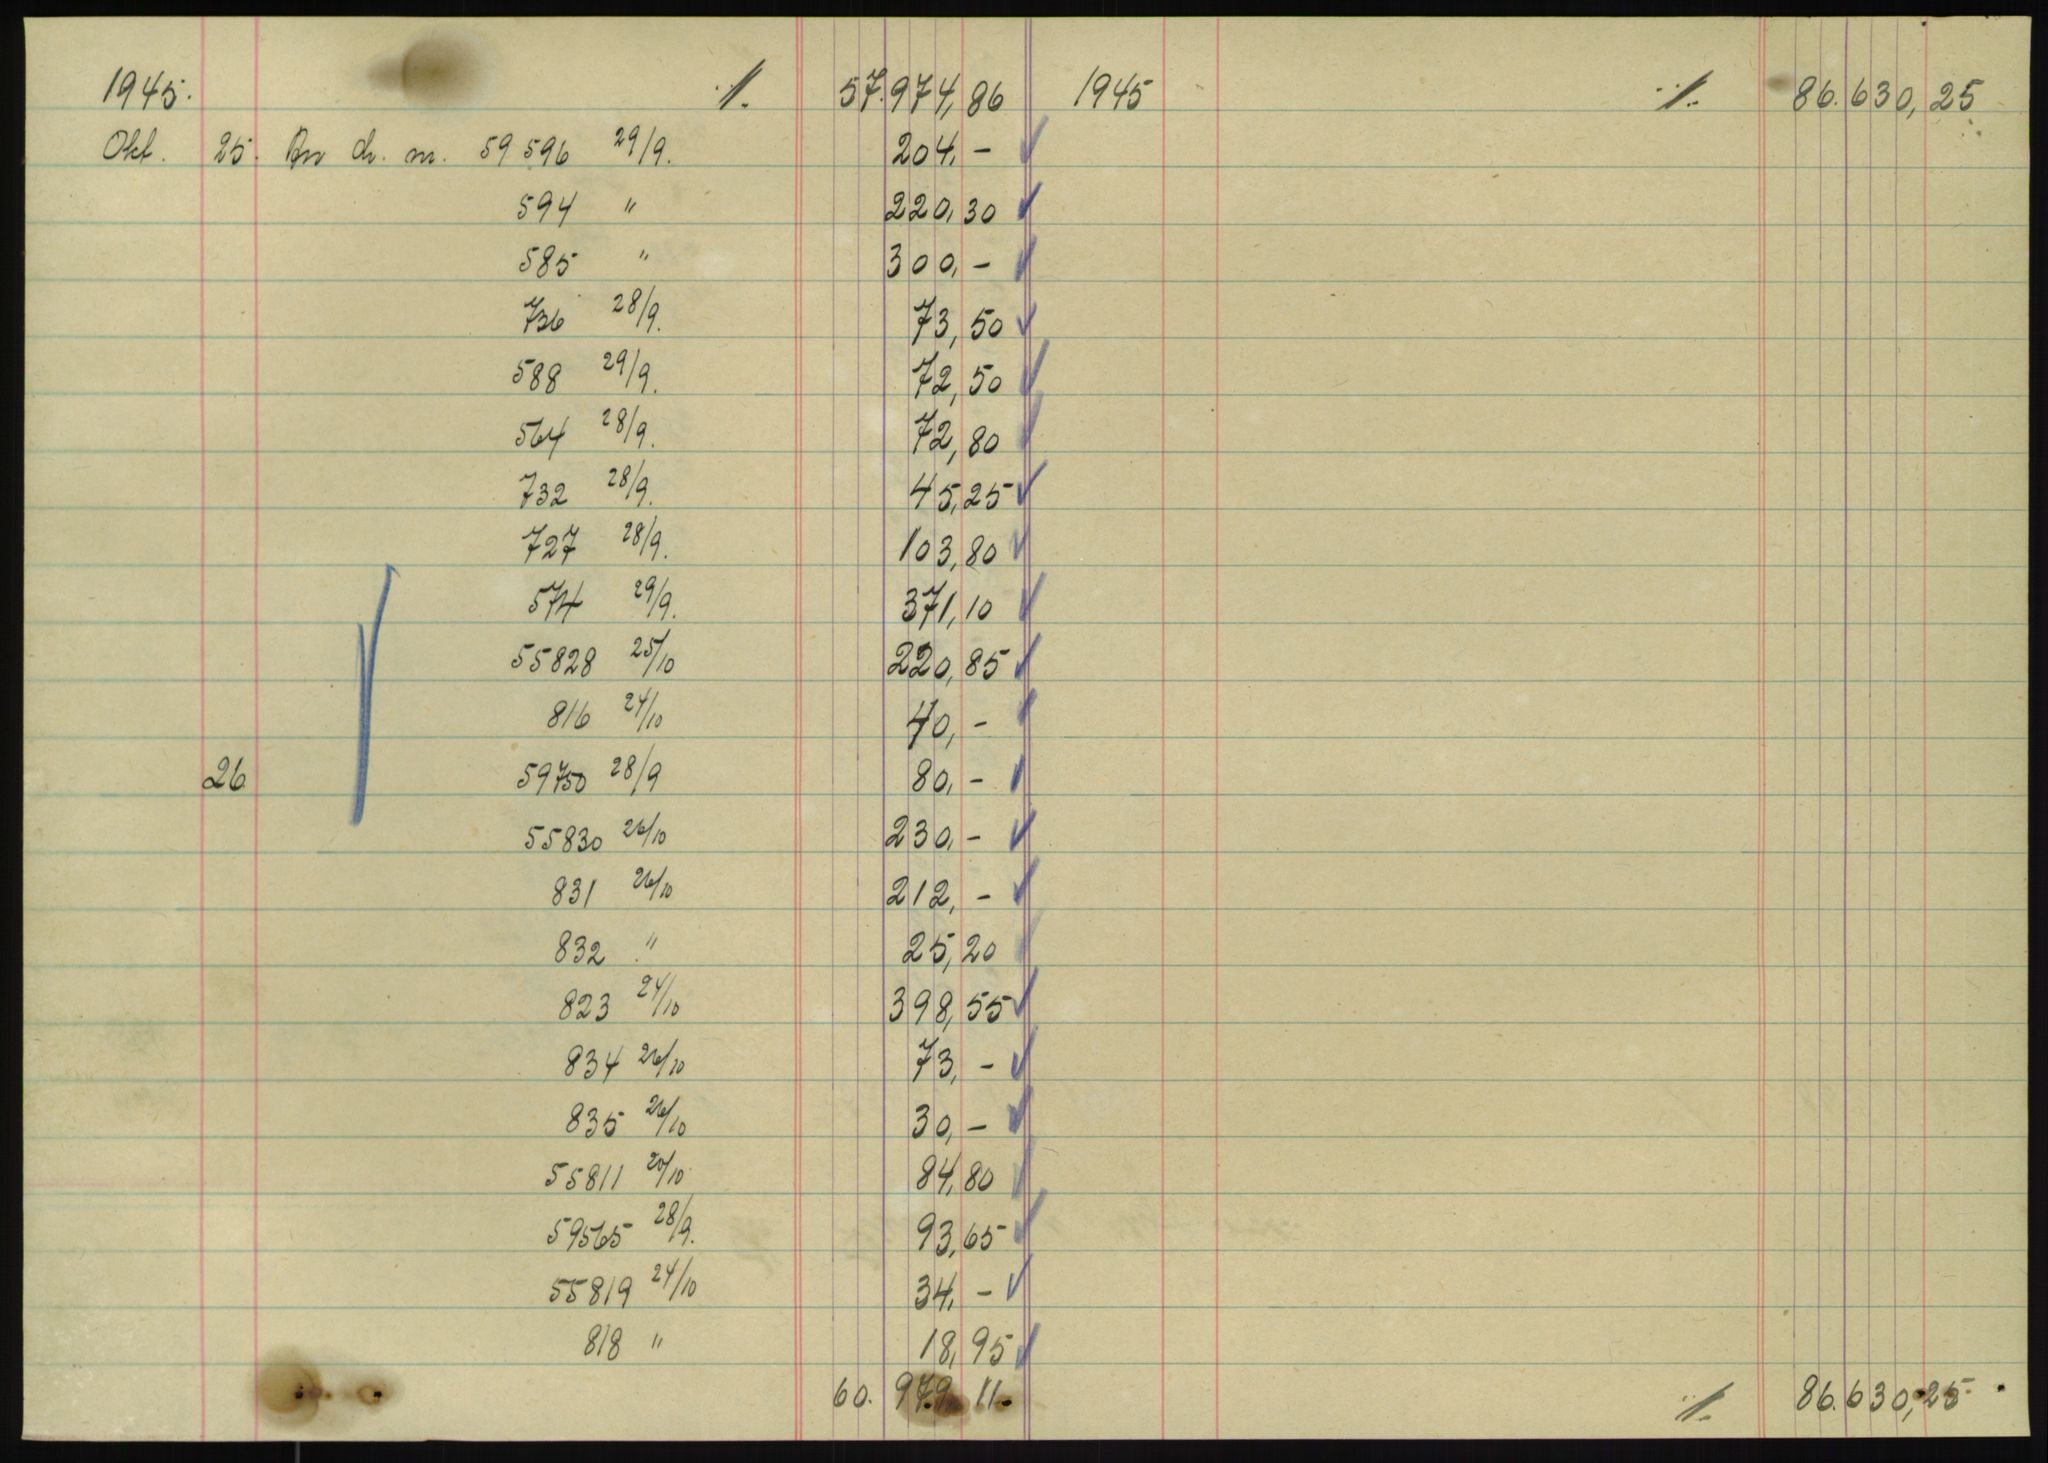 1945. ·/. 57.974,86
Okt. 25. An ch. nr. 59 596 29/9. 204,-
594 " 220,30
585 " 300,-
736 28/9. 73,50
588 29/9. 72,50
564 28/9. 72,80
732 28/9. 45,25
727 28/9. 103,80
574 29/9. 371,10
55828 25/10 220,85
816 24/10 40,-
26 59750 28/9 80,-
55830 26/10 230,-
831 26/10 212,-
832 " 25,20
823 24/10 398,55
834 26/10 73,-
835 26/10 30,-
55811 20/10 84,80
59565 28/9. 93,65
55819 24/10 34,-
818 " 18,95
60.979,11.
1945 ·/. 86.630,25
·/. 86.630,25